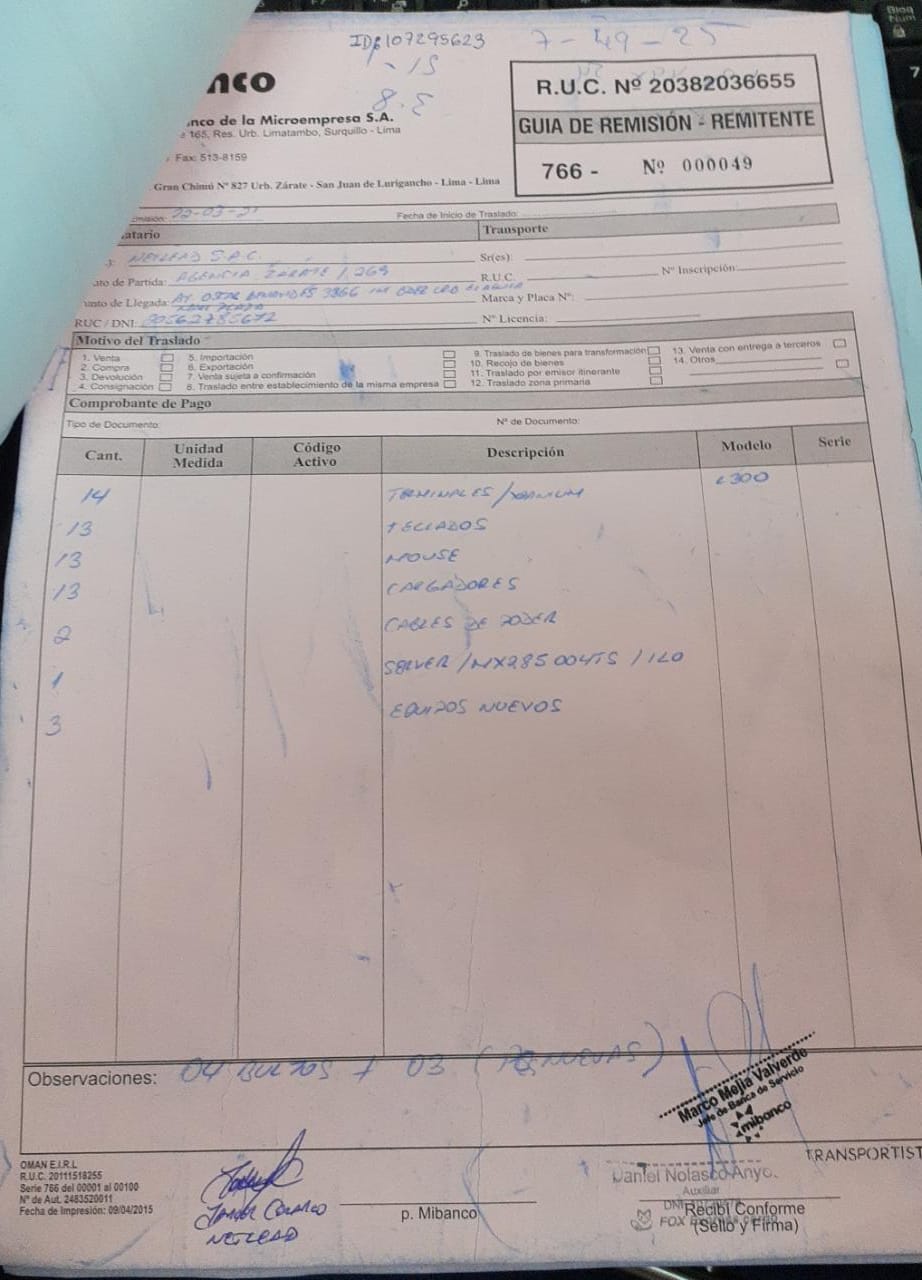 ID:107295623 7-49-25
1-15
8.5
nco
nco de la Microempresa S.A.
165, Res. Urb. Limatambo, Surquillo - Lima
Fax: 513-8159
Gran Chimú Nº 827 Urb. Zárate - San Juan de Lurigancho - Lima - Lima
R.U.C. Nº 20382036655
GUIA DE REMISIÓN - REMITENTE
766 - Nº 000049
misión: 22-03-21 Fecha de Inicio de Traslado:
atario Transporte
NETLEAD S.A.C. Sr(es):
to de Partida: AGENCIA ZARATE 1,269 R.U.C. Nº Inscripción
unto de Llegada: AV OSCAR BENAVIDES 3866 Marca y Placa Nº:
RUC / DNI: Nº Licencia:
Motivo del Traslado
1. Venta 5. Importación 9. Traslado de bienes para transformación 13. Venta con entrega a terceros
2. Compra 6. Exportación 10. Recojo de bienes 14. Otros
3. Devolución 7. Venta sujeta a confirmación 11. Traslado por emisor itinerante
4. Consignación 8. Traslado entre establecimiento de la misma empresa 12. Traslado zona primaria
Comprobante de Pago
Tipo de Documento: Nº de Documento:
Cant. Unidad Medida Código Activo Descripción Modelo Serie
14 TERMINALES/XANIUM L300
13 TECLADOS
13 MOUSE
13 CARGADORES
2 CABLES DE PODER
1 SERVER/MX285004TS/ILO
3 EQUIPOS NUEVOS
Observaciones: 04 BULTOS + 03 (PCS NUEVAS)
Marco Mejía Valverde
Jefe de Banca de Servicio
mibanco
OMAN E.I.R.L
R.U.C. 20111518255
Serie 766 del 00001 al 00100
Nº de Aut. 2483520011
Fecha de Impresión: 09/04/2015
NETLEAD
p. Mibanco
TRANSPORTIST
Daniel Nolasco Anyo.
Auxiliar
DNI
FOX
Recibí Conforme
(Sello y Firma)